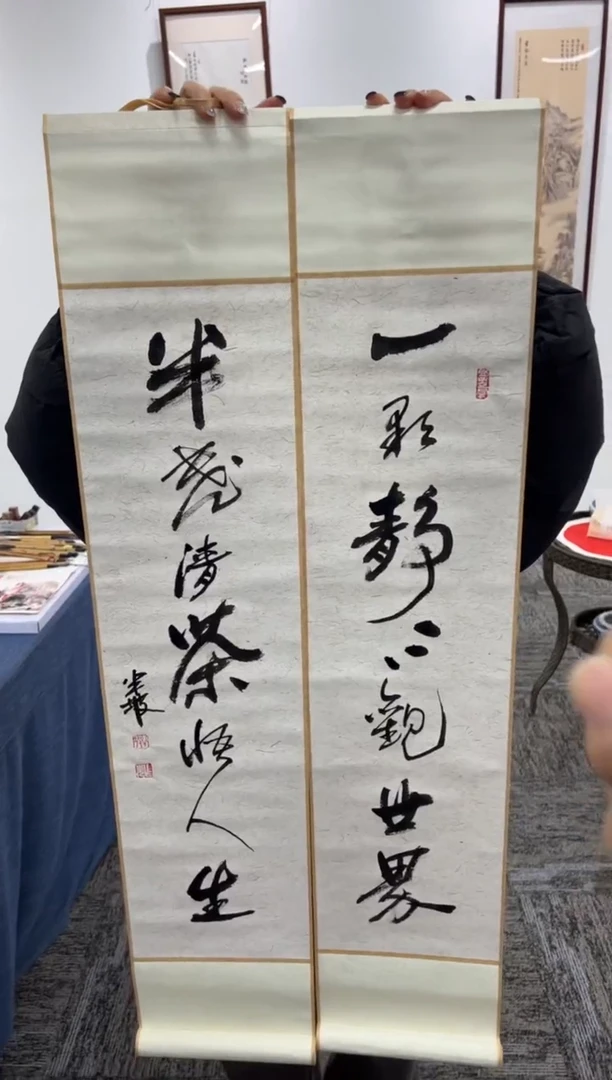 一颗静心觀世界
半盏清茶悟人生